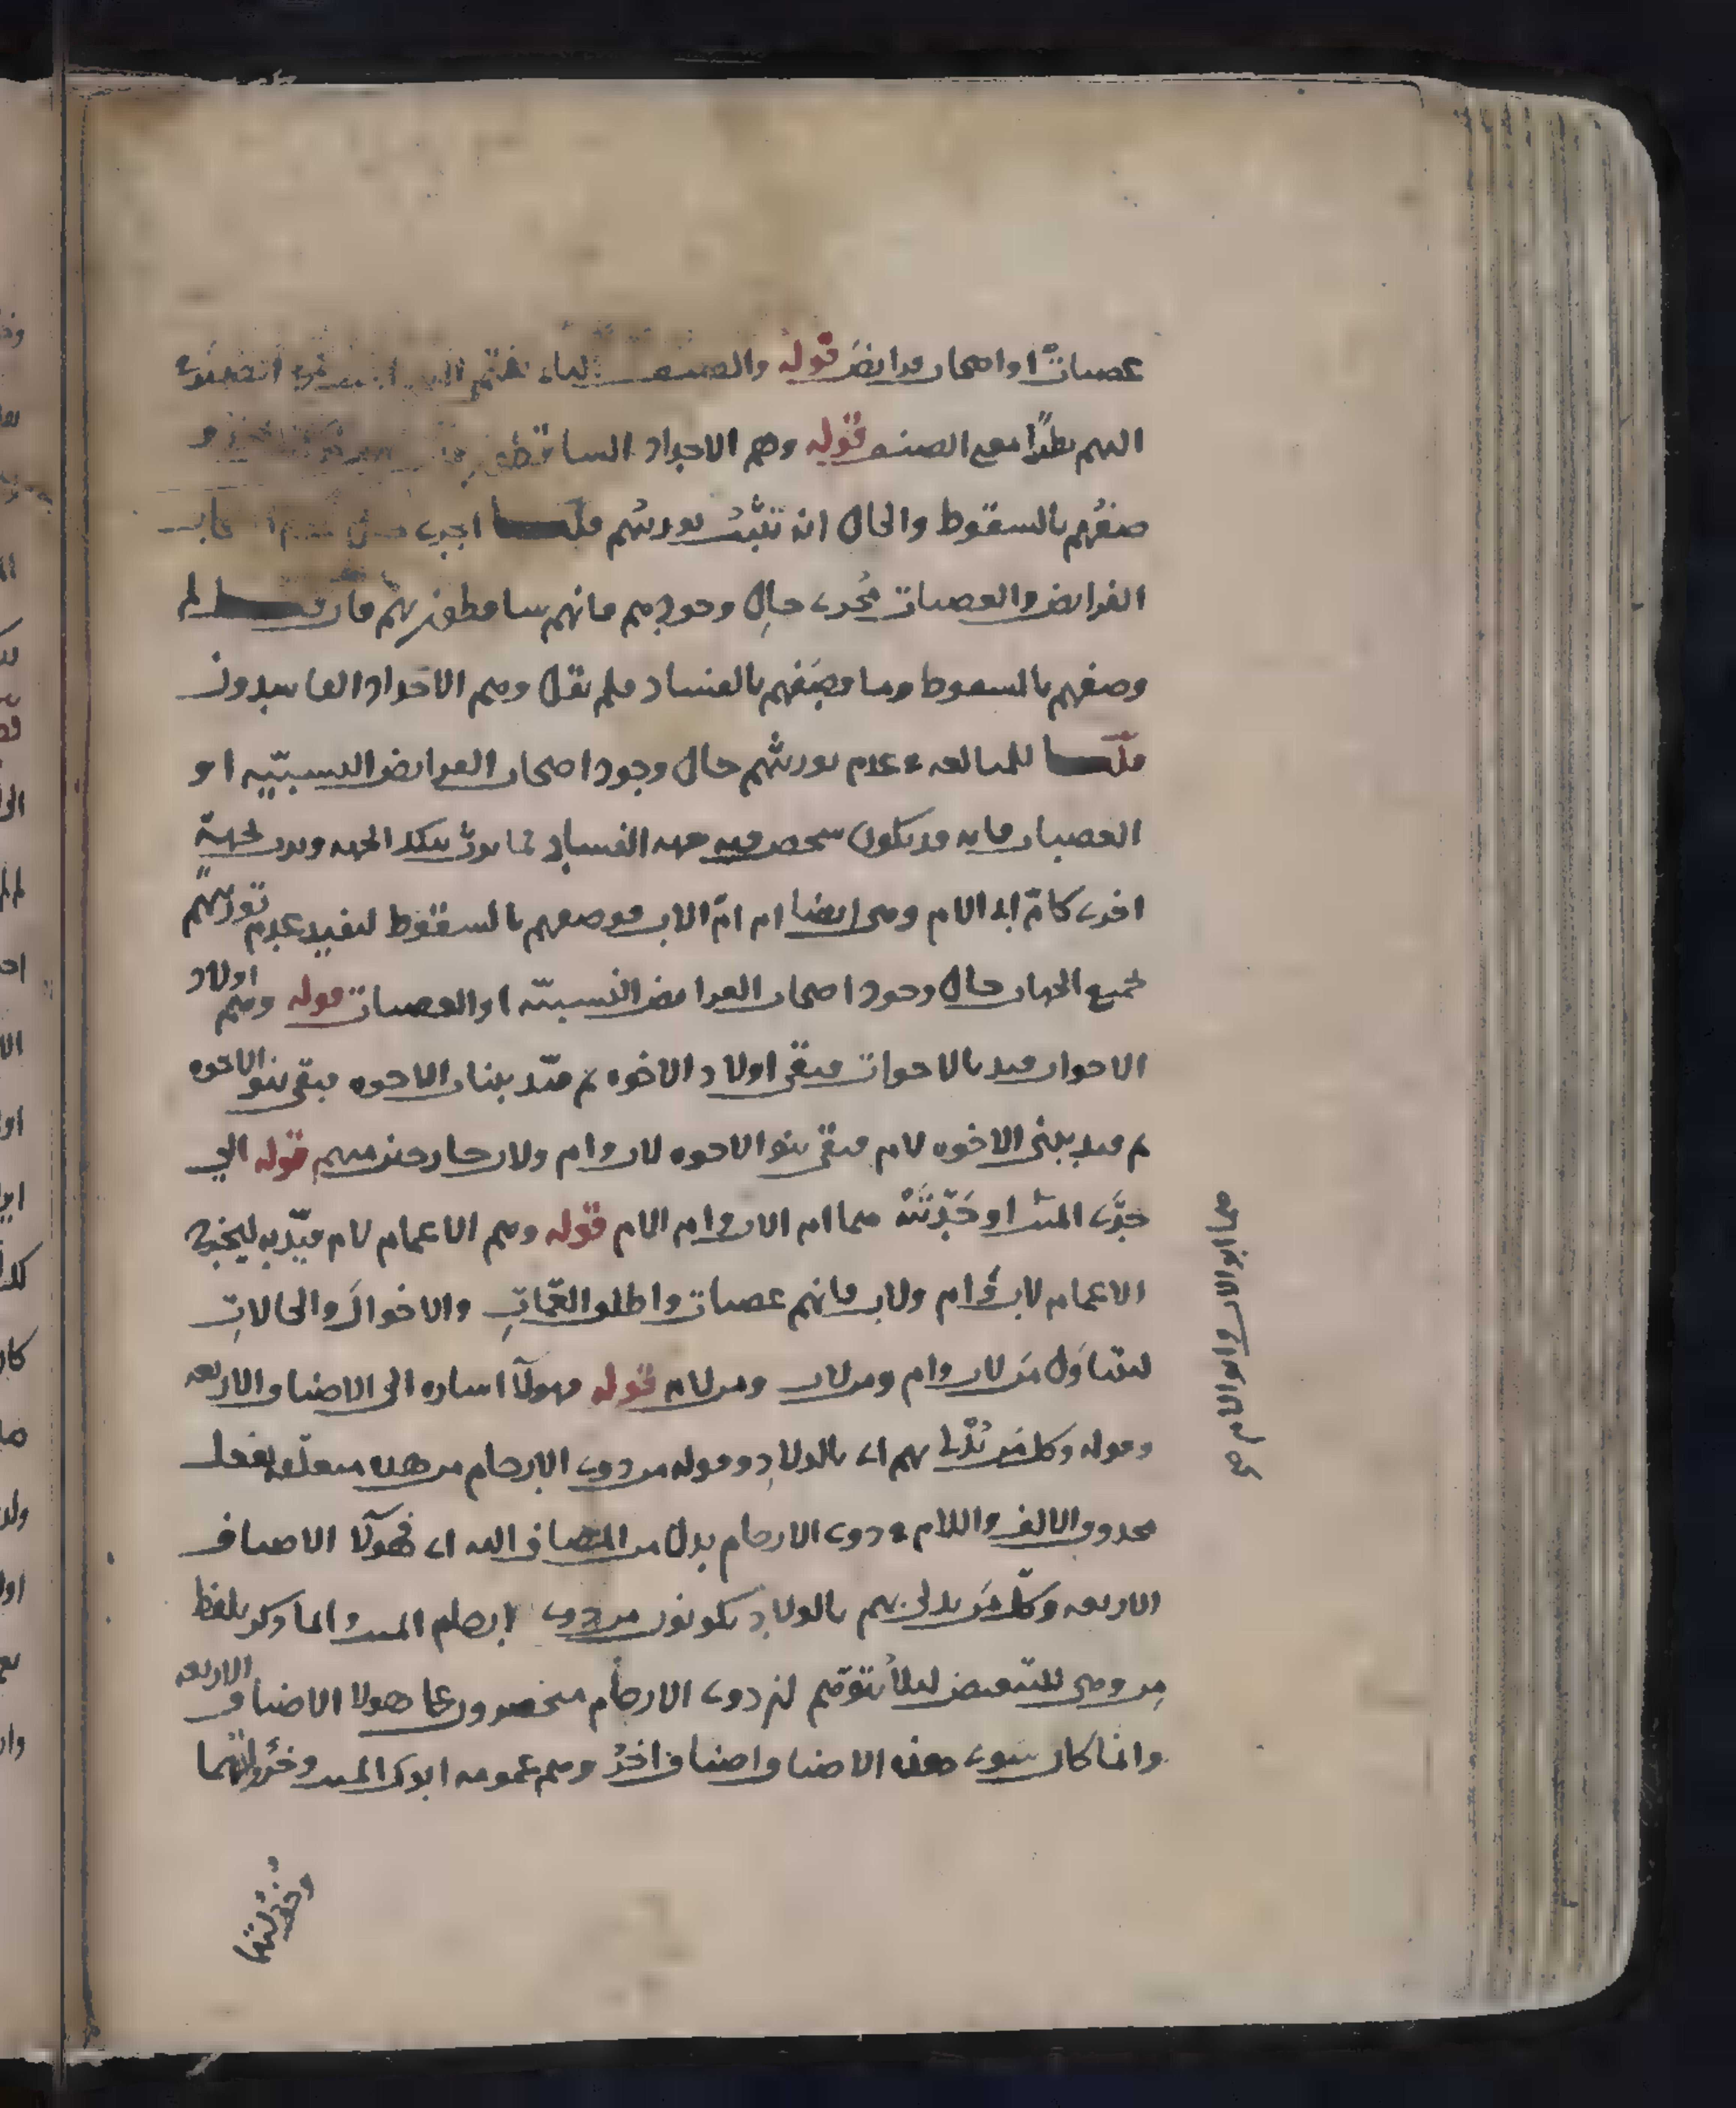 عصبات او اصحاب فرايض قوله والصنف
اليهم نظرًا لمعنى الصنف قوله وهم الاجداد الساقطون
صفهم بالسقوط والحال انه تثبت توريثهم قلت
الفرايض والعصبات نجري حال وجودهم فانهم ساقطون بهم فان قلت لم
وصفهم بالسقوط وما وصفهم بالفساد فلم يقل وهم الاجداد الفاسدون
قلت للمبالغة في عدم توريثهم حال وجود اصحاب الفرايض النسبيّه او
العصبات فانه قد يكون شخص فيه جهة الفساد فما يورث بتلك الجهه ويرث لجهة
اخرى كامّ اب الام وهي ايضا ام امّ الاب فوصفهم بالسقوط ليفيد عدم توريثهم
لجميع الجهات حال وجود اصحاب الفرايض النسبيّه او العصبات قوله وهم اولاد
الاخوات قيد بالاخوات فبقي اولاد الاخوه ثم قيّد ببنات الاخوه فبقي بنو الاخوه
ثم قيد ببني الاخوه لام فبقي بنو الاخوه لاب وام ولاب خارجين منهم قوله الي
جدّي الميت او جدّتيه هما ام الاب وام الام قوله وهم الاعمام لام قيّد به ليخرج
الاعمام لاب وام ولاب فانهم عصبات واطلق العمّاتِ والاخوال والخالاتِ
ليتناول مَن لاب وام ومن لاب ومن لام قوله فهولآ اشاره الى الاصناف الاربعه
وقوله وكل من يُدْلي بهم اي بالولادِ وقوله من ذوي الارحام من هذه متعلّقه بفعل
محذوف والالف واللام في ذوي الارحام بدل من المضاف اليه اي فهولآ الاصناف
الاربعه وكلّ من يدلى بهم بالولادِ يكونون من ذوي ارحام الميت وانما ذكر بلفظ
مِن وهي للتبعيض لئلا يتوهّم ان ذوي الارحام منحصرون على هولا الاصناف الاربعه
وانما كان سوى هذه الاصناف اصناف اخرُ وهم عمومه ابوي الميت وخؤولتهما
وخؤولتهما
هما ابو الاب وابو الام صح